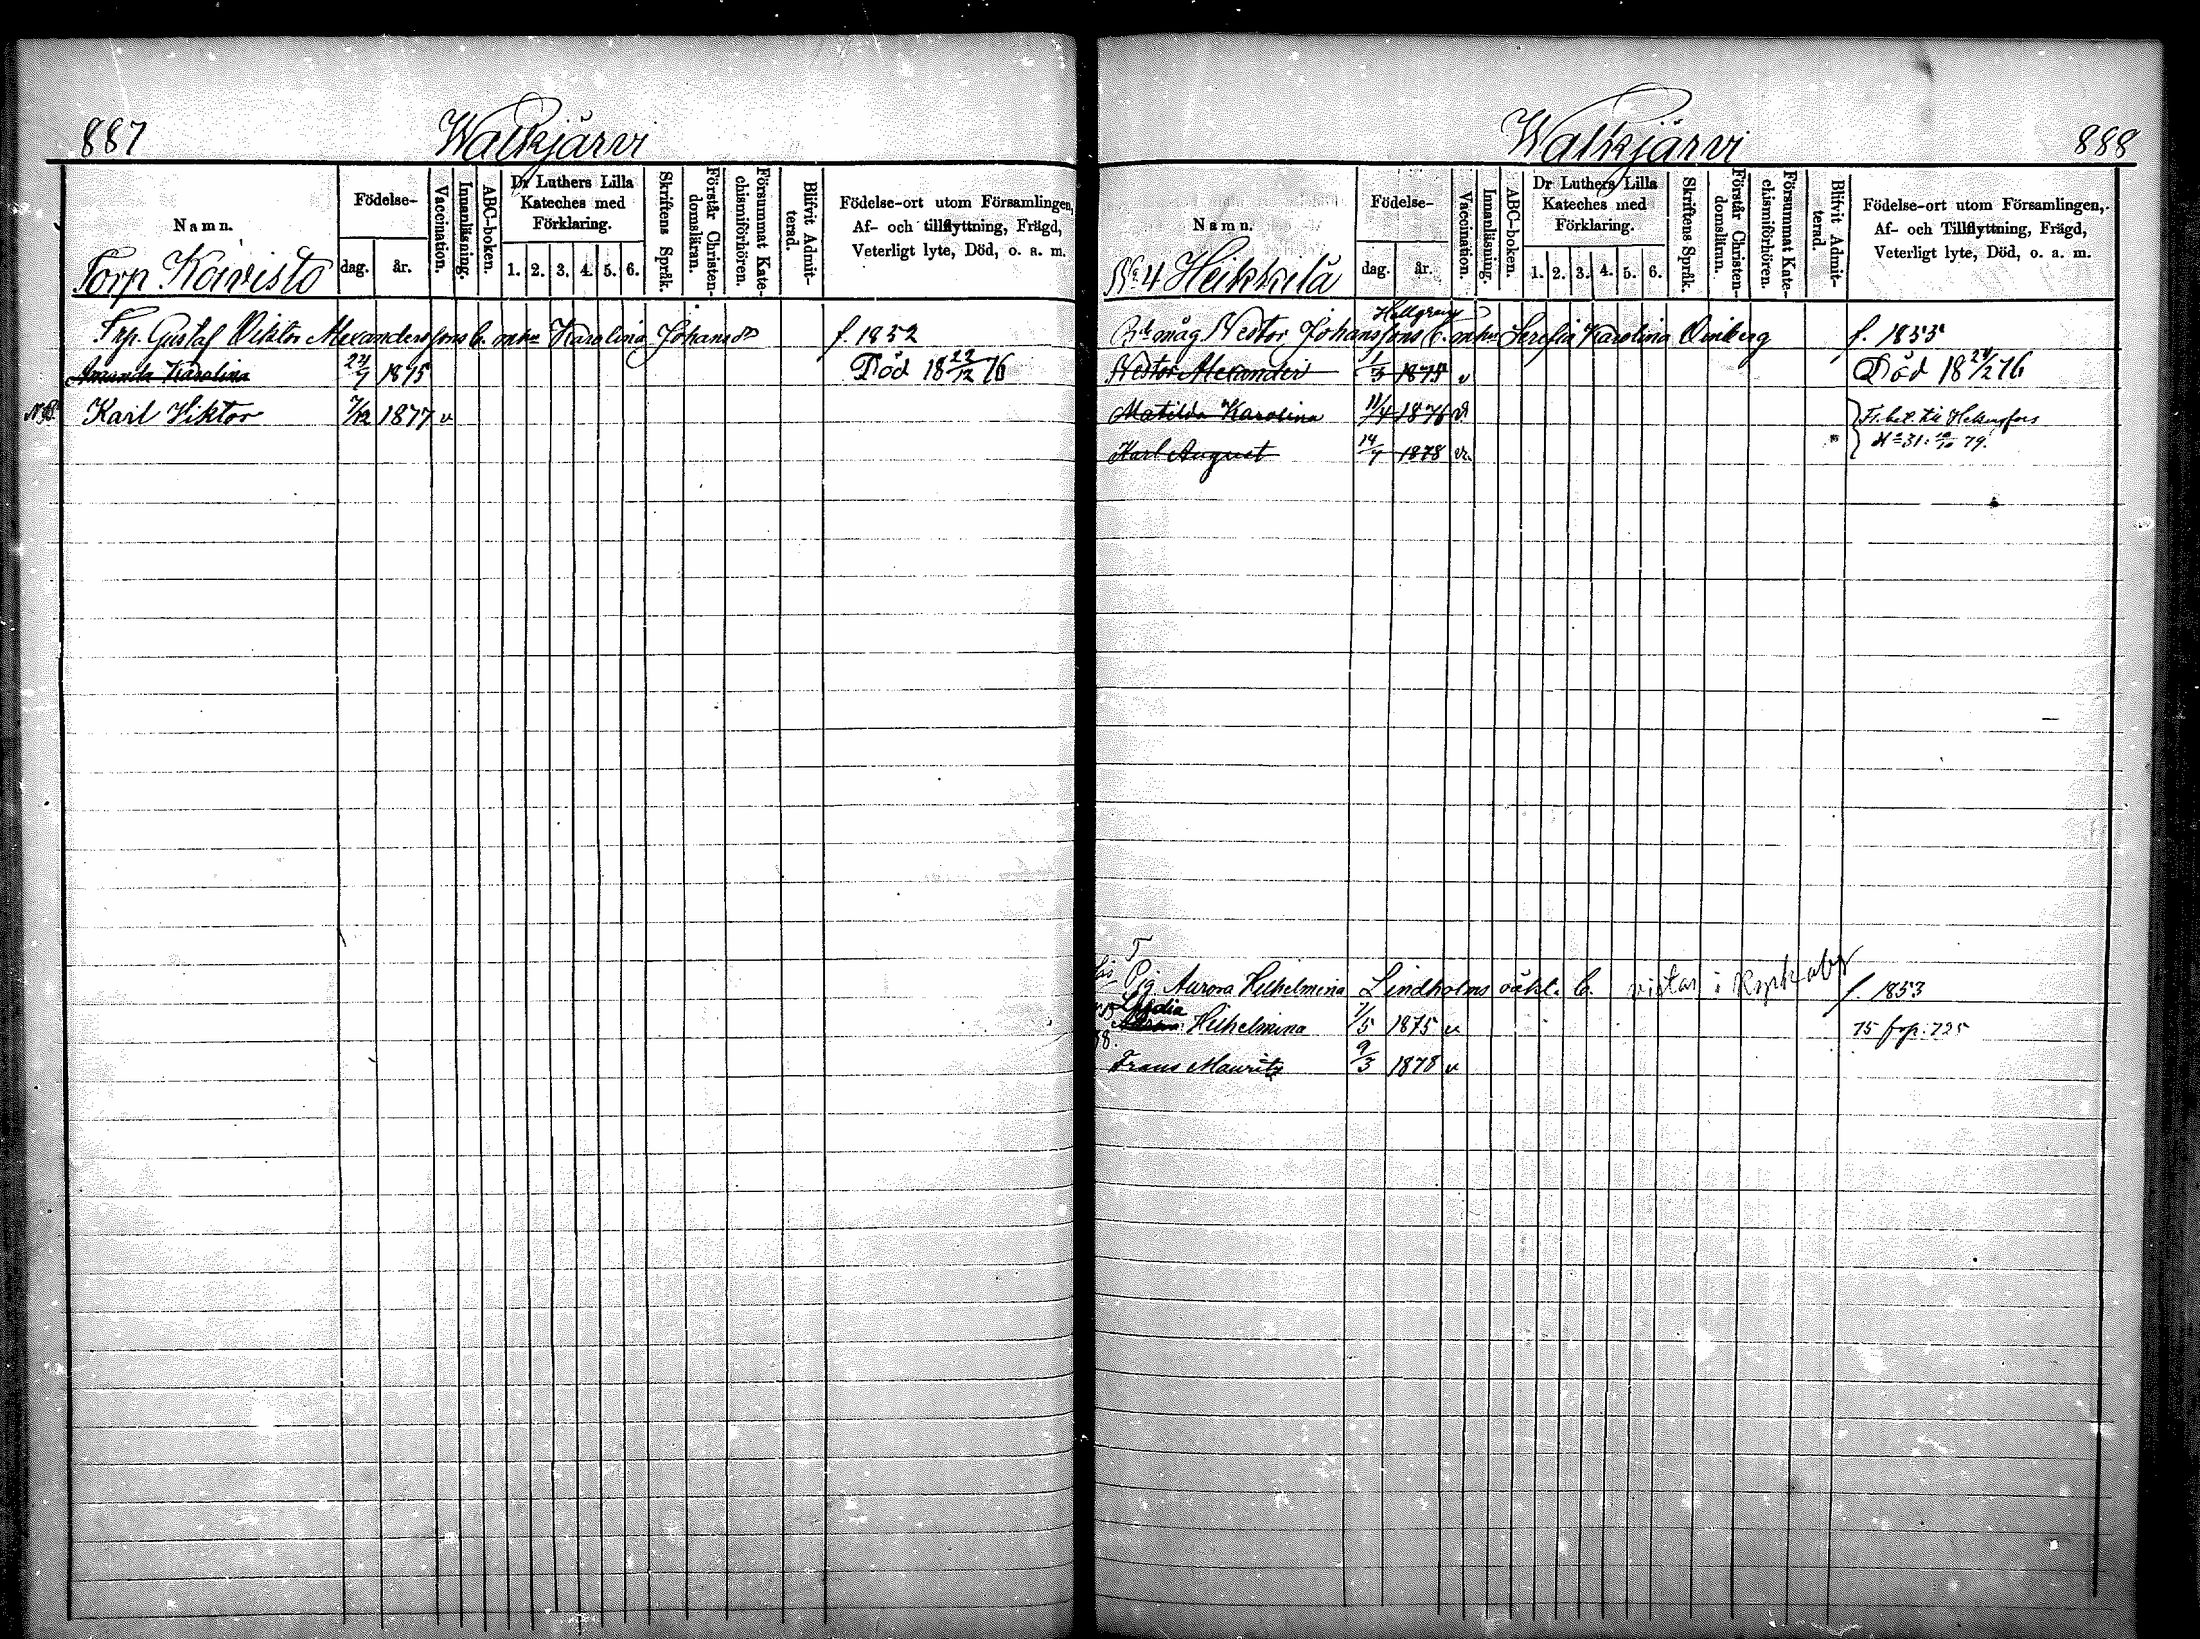 887
Walkjärvi
Namn.
Födelse-
dag.
år.
Vaccination.
Innanläsning.
ABC-boken.
Dr Luthers Lilla
Kateches med
Förklaring.
1. 2. 3. 4. 5. 6.
Skriftens Språk.
Förstår Christen-
domsläran.
Försummat Kate-
chismiförhören.
Blifvit Admit-
terad.
Födelse-ort utom Församlingen,
Af- och tillflyttning, Frägd,
Veterligt lyte, Död, o. a. m.
Torp Koivisto
Trp. Gustaf Viktor Alexandersfons b. m hu Karolina Johansdr f. 1852
Amanda Karolina 24/7 1875 Död 18 23/12 76
Karl Viktor 7/12 1877 v
Walkjärvi
888
Namn.
Födelse-
dag.
år.
Vaccination.
Innanläsning.
ABC-boken.
Dr Luthers Lilla
Kateches med
Förklaring.
1. 2. 3. 4. 5. 6.
Skriftens Språk.
Förstår Christen-
domsläran.
Försummat Kate-
chismiförhören.
Blifvit Admit-
terad.
Födelse-ort utom Församlingen,
Af- och Tillflyttning, Frägd,
Veterligt lyte, Död, o. a. m.
No 4 Heikkilä
måg Nestor Johansfons b. m hu Serefia Karolina f. 1855
Nestor Alexander 1/3 1875 v Död 18 24/2 76
Matilda Karolina 11/4 1876 v
Karl August 14/7 1878 v.
Helsingfors
31. 79.
Pig. Aurora Wilhelmina Lindholms oäkt. b. vistas i f. 1853
Lydia Wilhelmina 1/5 1875 v 75 725
Frans Mauritz 9/3 1878 v